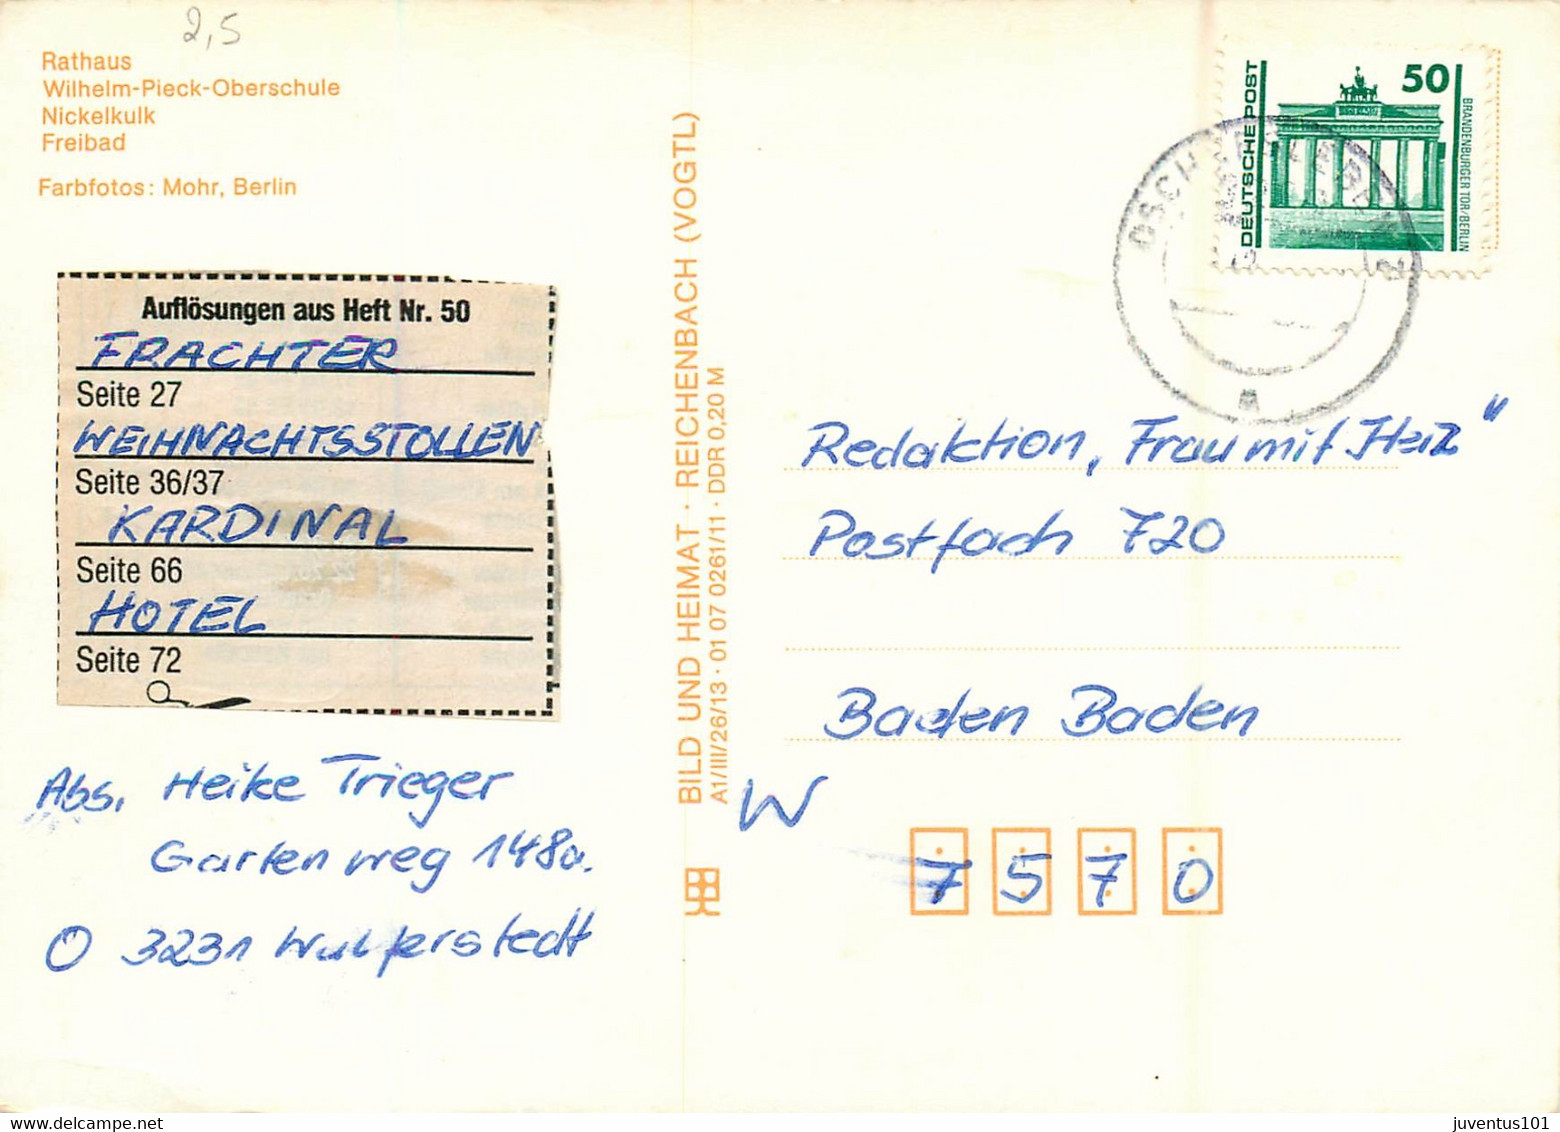 2,5
Rathaus
Wilhelm-Pieck-Oberschule
Nickelkulk
Freibad
Farbfotos: Mohr, Berlin
Auflösungen aus Heft Nr. 50
FRACHTER
Seite 27
WEIHNACHTSSTOLLEN
Seite 36/37
KARDINAL
Seite 66
HOTEL
Seite 72
Abs. Heike Trieger
Gartenweg 148a.
O 3231 Wulferstedt
BILD UND HEIMAT · REICHENBACH (VOGTL)
A1/III/26/13 · 01 07 0261/11 · DDR 0,20 M
DEUTSCHE POST
50
BRANDENBURGER TOR/BERLIN
Redaktion „Frau mit Herz"
Postfach 720
Baden Baden
W
7 5 7 0
juventus101